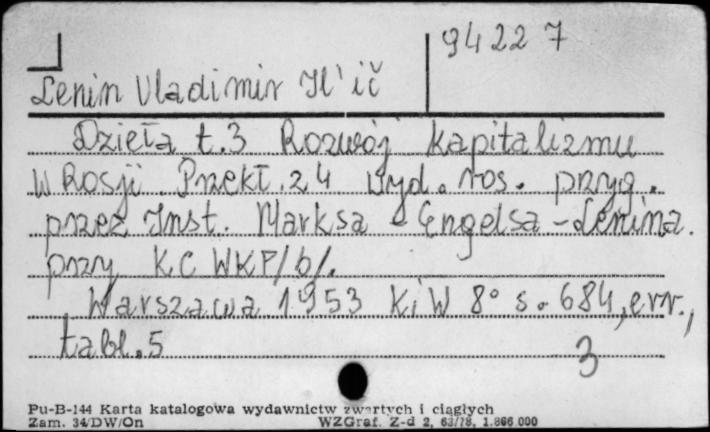 94227
Lenin Vladimir Il'ič
Dzieła t.3 Rozwój kapitalizmu
w Rosji. Przekł. z 4 wyd. ros. przyg.
przez Inst. Marksa - Engelsa - Lenina.
przy KC WKP/b/.
Warszawa 1953 KiW 8° s. 684, err.,
tabl. 5
3
Pu-B-144 Karta katalogowa wydawnictw zwartych i ciągłych
Zam. 34/DW/On WZGraf. Z-d 2, 63/78, 1.866.000